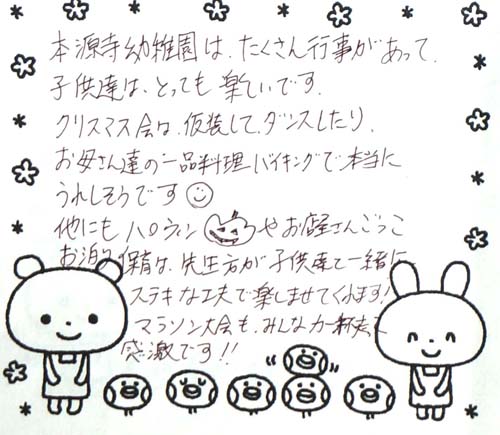 本源寺幼稚園は、たくさん行事があって、
子供達は、とっても楽しいです。
クリスマス会は、仮装して、ダンスしたり、
お母さん達の一品料理バイキングで本当に
うれしそうです
他にもハロウィンやお店屋さんごっこ
お泊り保育は、先生方が子供達と一緒に
ステキな工夫で楽しませてくれます!
マラソン大会も、みんな力一杯走って
感激です!!